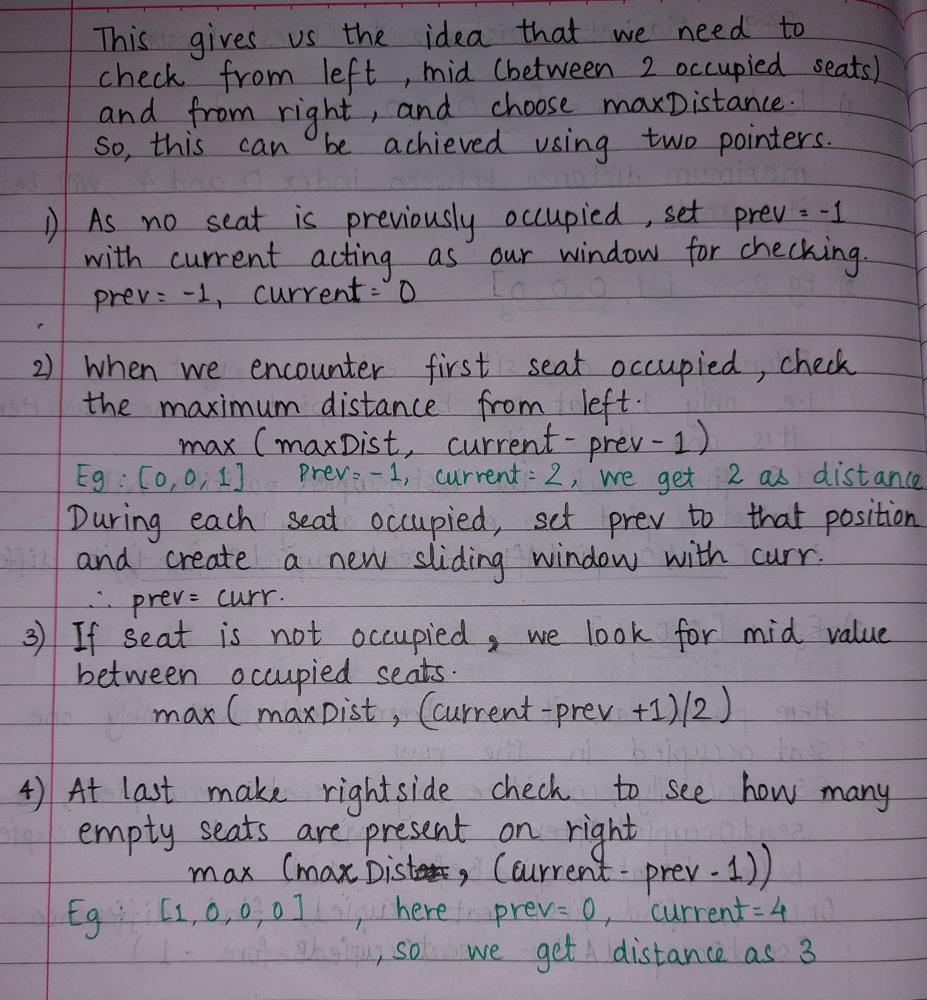 This gives us the idea that we need to
check from left , mid (between 2 occupied seats)
and from right , and choose maxDistance.
So, this can be achieved using two pointers.
1) As no seat is previously occupied , set prev = -1
with current acting as our window for checking.
prev = -1, current = 0
2) When we encounter first seat occupied , check
the maximum distance from left.
max (maxDist, current - prev - 1)
Eg : [0,0,1] Prev = -1, current = 2, we get 2 as distance
During each seat occupied, set prev to that position
and create a new sliding window with curr.
∴ prev = curr.
3) If seat is not occupied , we look for mid value
between occupied seats.
max ( maxDist , (current - prev +1)/2 )
4) At last make rightside check to see how many
empty seats are present on right
max (maxDist , (current - prev - 1))
Eg : [1,0,0,0] , here prev = 0, current = 4
, so we get distance as 3